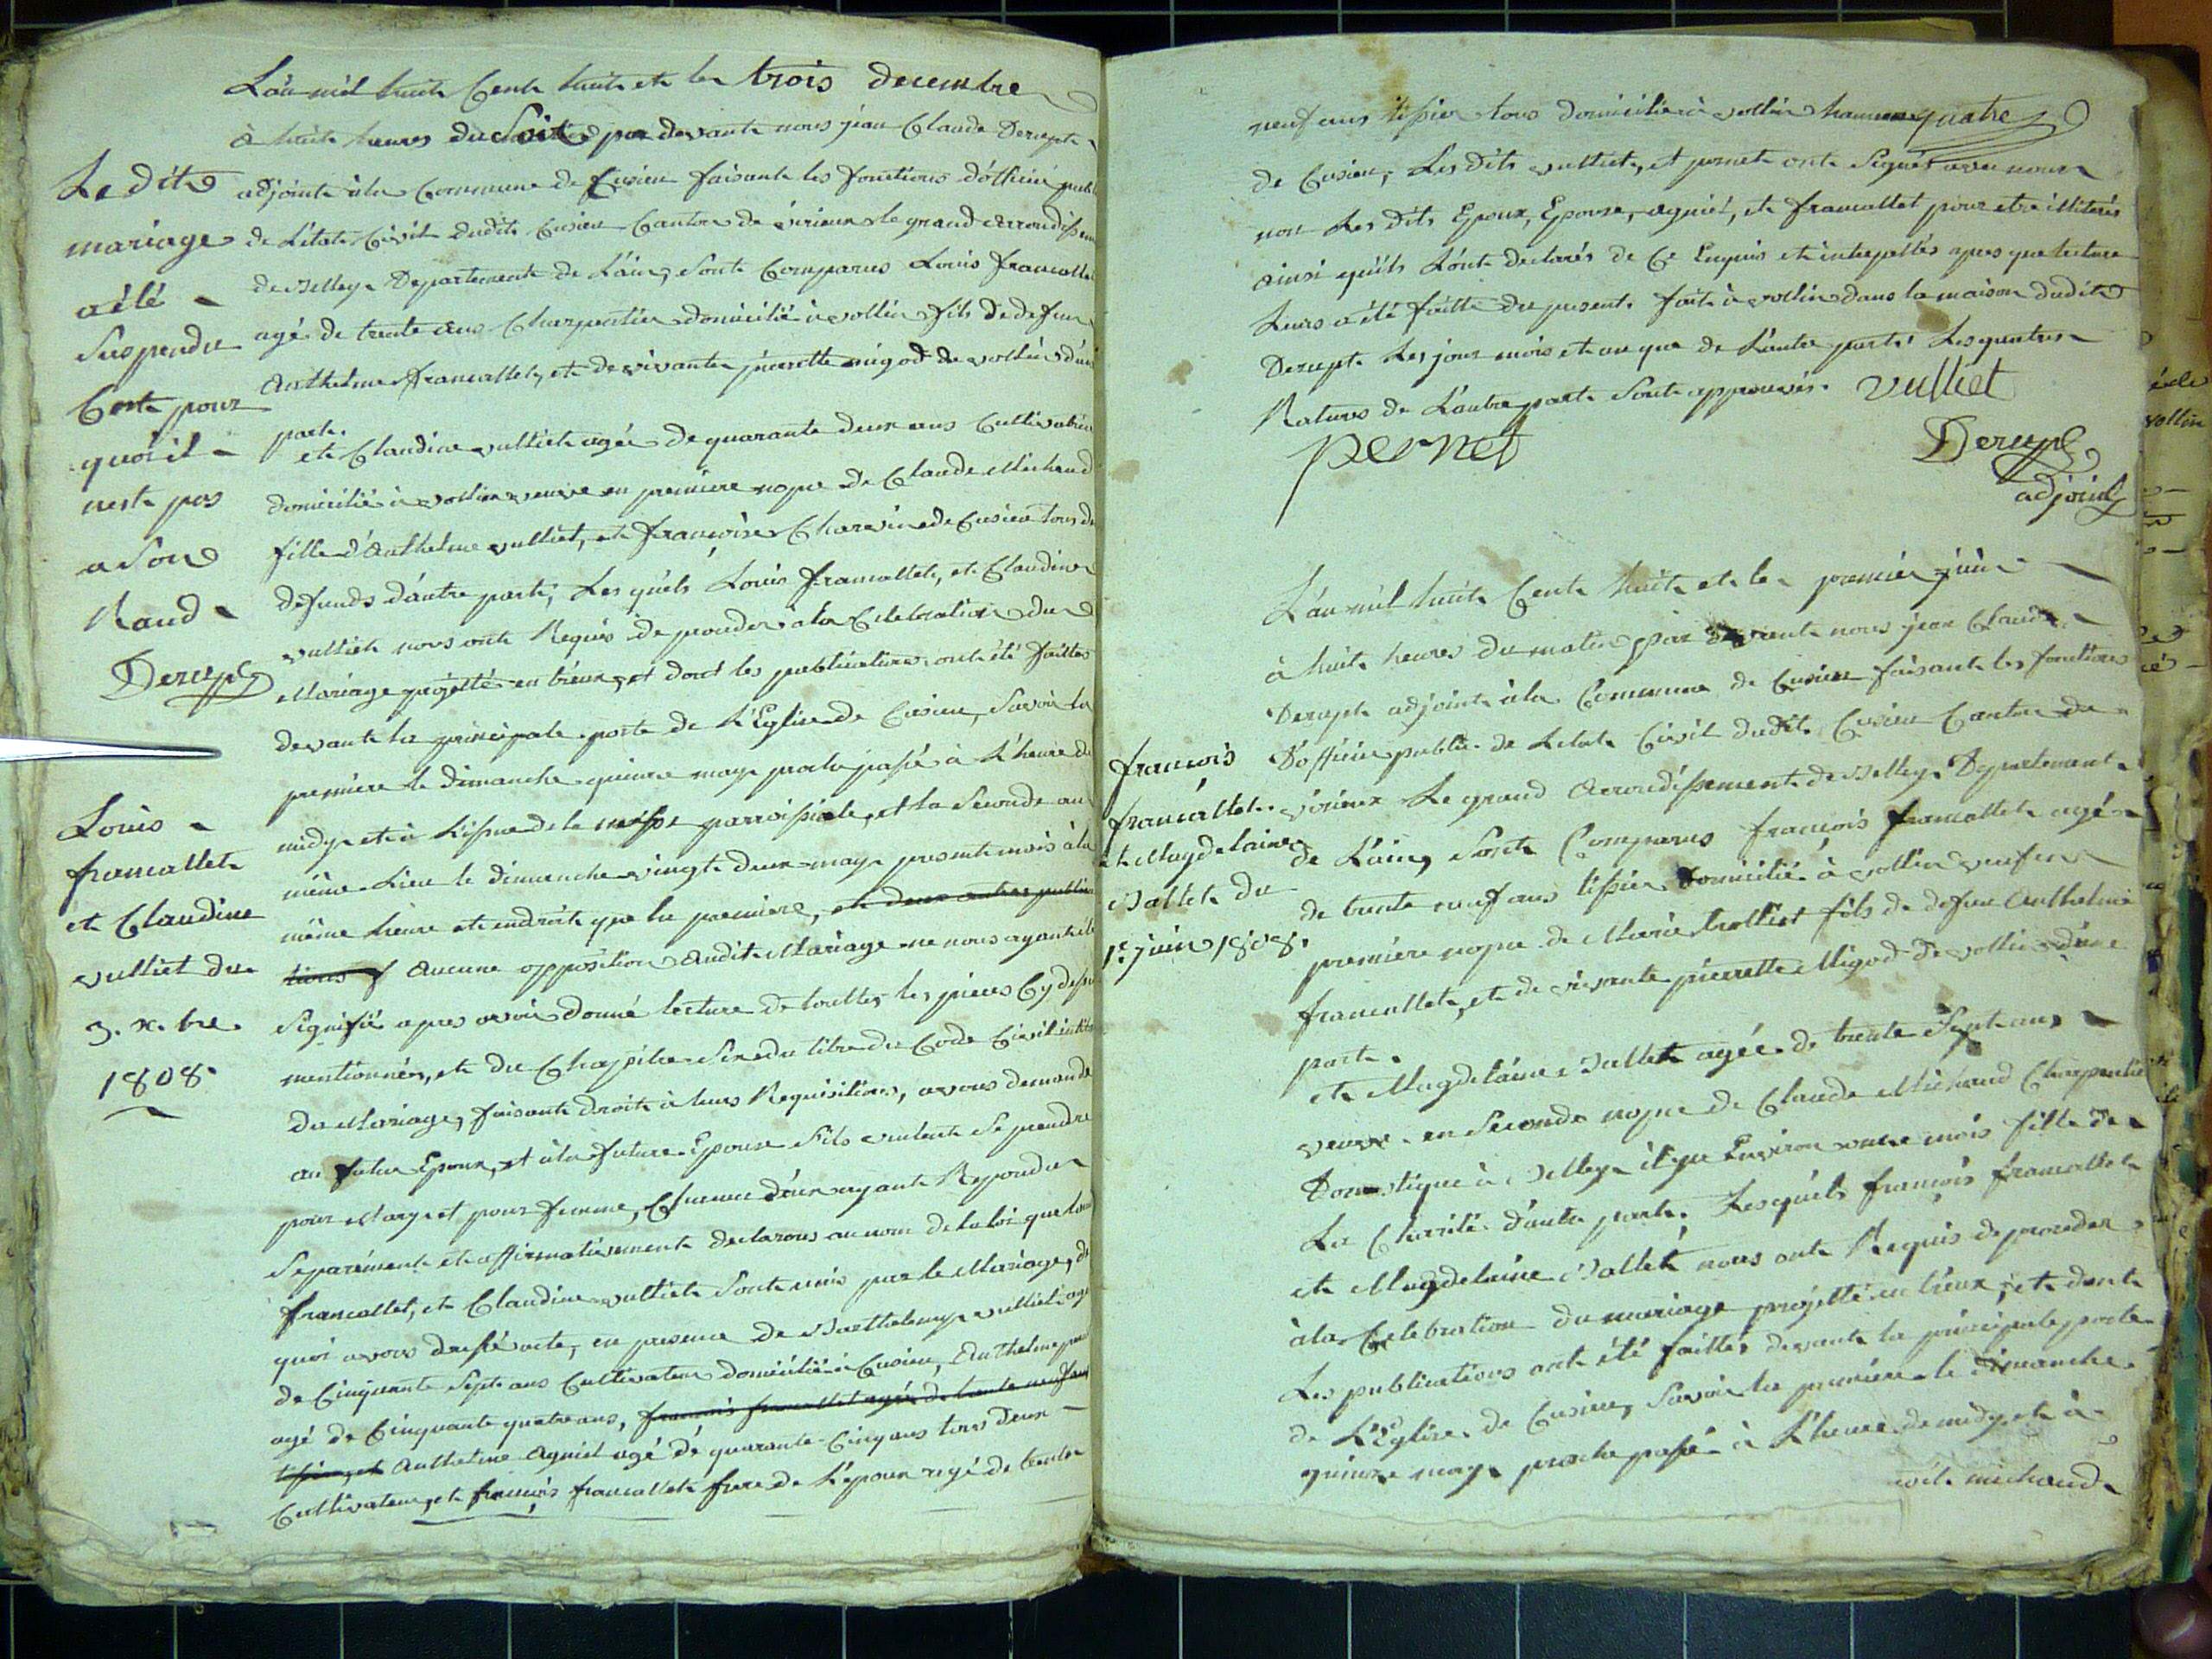 L'an mil huit Cent huit et le trois decembre
à huit heures du Soir par devant nous jean Claude Derupt
adjoint à la Commune de Cusieu faisant les fonctions d'officié publ
de L'état Civil dudit Cusieu Canton de virieux le grand arrondissem
de Belley Departement de L'ain, Sont Comparus Louis francallet
agé de trente ans Charpentier domicilié à vollin fils de defun
Anthelme francallet, et de vivante pierrette migod de vollin d'une
part.
et Claudine vulliet agée de quarante deux ans Cultivatrice
domicilié à vollin veuve en premiere nopce de Claude Michaud
fille d'Anthelme vulliet, et françoise Charvin de Cusieu tous d
defunds d'autre part; Lesquels Louis francallet, et Claudine
vulliet nous ont Requis de proceder à la Celebration du
Mariage projetté en trèux, et dont les publications ont été faittes
devant la principale porte de L'Eglise de Cusieu, Savoir la
premiere le dimanche quinze may proche passé à L'heure de
midy et à L'issue de la messe parroissiale, et la Seconde au
même Lieu le dimanche vingt deux may present mois à la
même heure et endroit que la premiere, et deux autres publica
tions Aucune opposition Audit Mariage ne nous ayant été
Signifié apres avoir donné lecture de touttes les pieces Cy dessu
mentionnées, et du Chapitre Six du titre du Code Civil intit
du Mariage, faisant droit à leurs Requisitions, avons demandé
au futur Epoux, et à la future Epouse S'ils veulent Se prendre
pour Mary et pour femme, Chacun d'eux ayant Repondu
Separément et affirmativement declarons au nom de la loi que Loui
francallet, et Claudine vulliet Sont unis par le Mariage, de
quoi avons dressé acte, en presence de Barthelemy vulliet agé
de Cinquante Sept ans Cultivateur domicilié à Cusieu, Anthelme
agé de Cinquante quatre ans, francois francallet agé de trente neuf ans
tissier, et Anthelme Agniel agé de quarante Cinq ans tous deux
Cultivateur, et françois francallet frere de L'epoux agé de trente
Le dit
mariage
a été
Suspendu
C'est pour
quoi il
nest pas
a Son
Rand
Derupt
Louis
francallet
et Claudine
vulliet du
3. x.bre.
1808
neuf ans tissier tous domicilié à vollin hameau quatre
de Cusieu, Les dits vulliet, et pernet ont Signés avec nous
non Les dits Epoux, Epouse, agniel, et francallet pour etre illiterés
ainsi qu'ils L'ont declarés de Ce Enquis et interpellés apres que lecture
Leurs a été faitte du present. fait à vollin dans la maison dudit
Derupt Les jour mois et an que de L'autre part. Les quatres
Ratures de L'autre part Sont approuvés. vulliet
pernet
Derupt
adjoint
L'an mil huit Cent huit et le premier juin
à huit heures du matin par devant nous jean Claude
Derupt adjoint à la Commune de Cusieu faisant les fonctions
D'officié public de Letat Civil dudit Cusieu Canton de
virieux Le grand Arrondissement de Belley Departement
de L'ain, Sont Comparus françois francallet agé
de trente neuf ans tissier domicilié à vollin veuf en
premiere nopce de Marie trolliet fils de defun Anthelme
francallet, et de vivante pierrette Migod de vollin d'une
part.
et Magdelaine Ballet agée de trente Sept ans
veuve en Seconde nopce de Claude Michaud Charpentier
Domestique à Belley il y a Environ onze mois fille de
La Charité d'autre part. Lesquels françois francallet
et Magdelaine Ballet nous ont Requis de proceder
à la Celebration du mariage projetté en trèux, et dont
Les publications ont été faittes devant la principale porte
de L'Eglise de Cusieu, Savoir la premiere le dimanche
quinze may proche passé à L'heure de midy et à
michaud
francois
francallet
et Magdelaine
Ballet du
1er juin 1808.